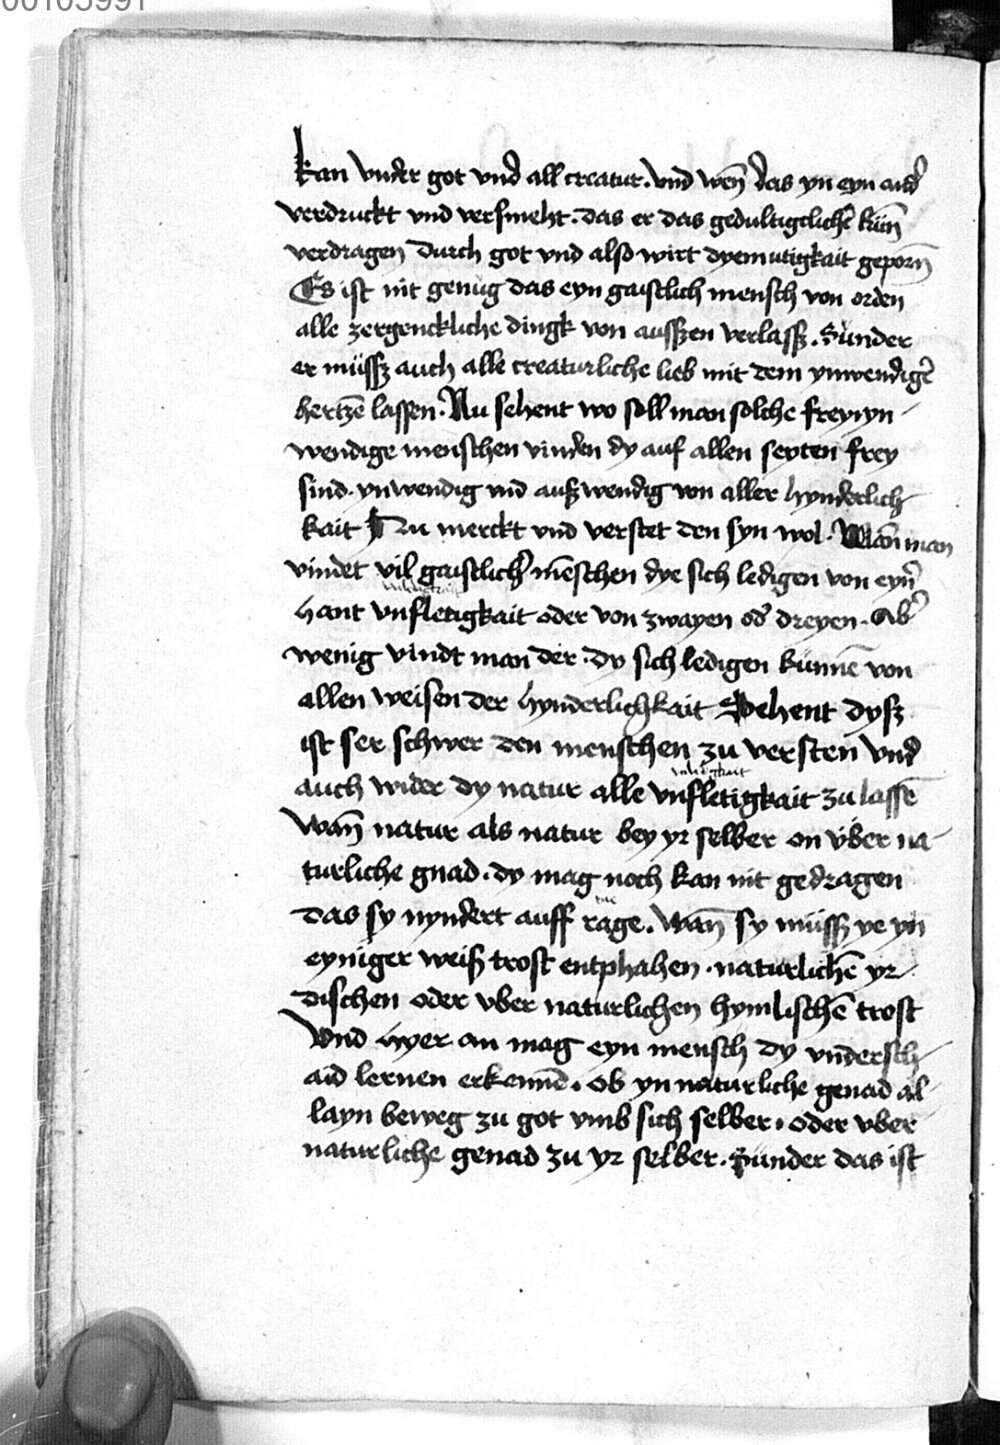 00103991
kan vnder got vnd all creatur. vnd wen̄ das yn eyn and᷑
verdruckt vnd versmeht. das er das gedultigclich᷑ kün̄
verdragen durch got vnd also wirt dyemutigkait geporn̄
Es ist nit genug das eyn gaistlich mensch von orden
alle zergenckliche dingk von aussʒen verlassʒ. Sunder
er müssʒ auch alle creaturliche lieb mit dem ynwendigē
hertzē lassen. Nu sehent wo soll man solche frey yn
wendige menschen vinden dy auf allen seyten frey
sind. ynwendig vnd außwendig von aller hynderlich
kait Nu merckt vnd verstet den syn wol. Wan̄ man
vindet vil gaistlich᷑ mēschen dye sich ledigen von eyn᷑
hant vnfletigkait oder von zwayen od᷑ dreyen. Ab᷑
wenig vindt man der. dy sich ledigen künnē von
allen weisen der hynderlichkait Sehent dysʒ
ist ser schwer den menschen zu versten vnd
auch wider dy natur alle vnfletigkait zu lassē
Wan̄ natur als natur bey yr selber on vber na
turliche gnad. dy mag noch kan nit gedragen
das sy nyndert auff rage. Wan̄ sy müssʒ ye yn
eyniger weiß trost entphahen. naturlichē yr
dischen oder vber naturlichen hymlischē trost
Vnd hyer an mag eyn mensch dy vndersch
aid lernen erkennē. ob yn naturliche genad al
layn beweg zu got vmb sich selber. oder vber
naturliche genad zu yr selber. Sunder das ist